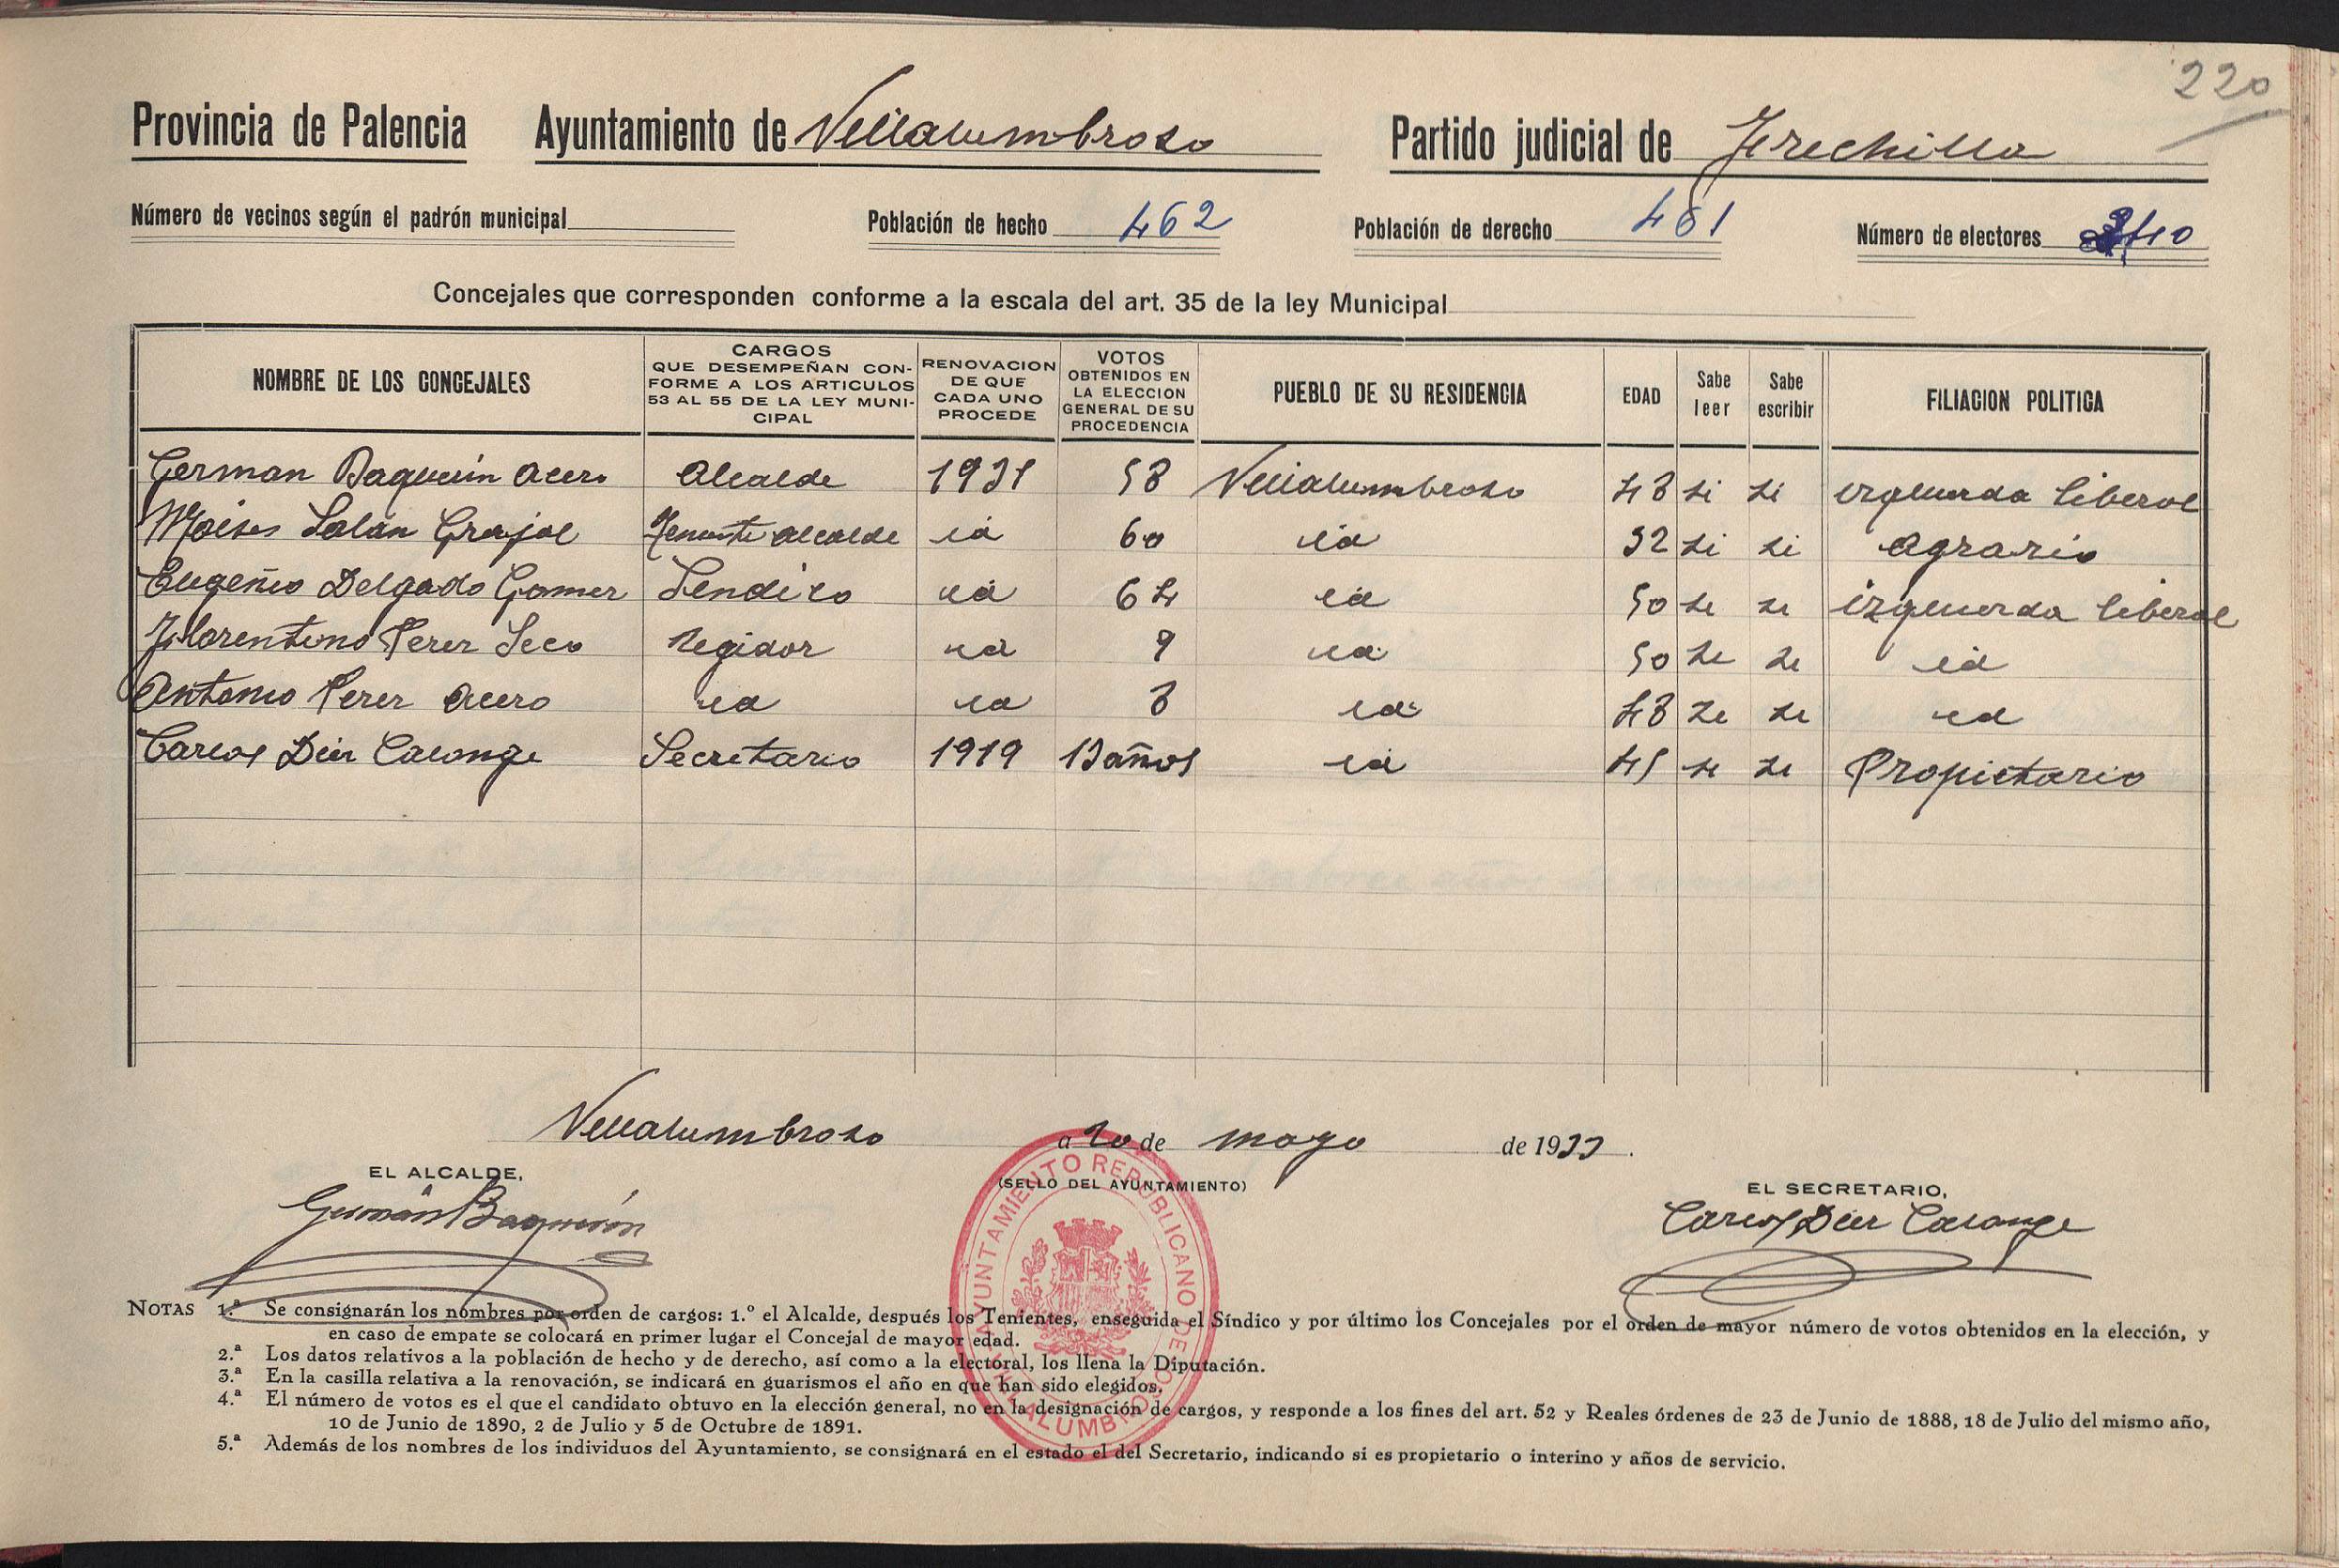 220
Provincia de Palencia Ayuntamiento de Villalumbroso Partido judicial de Frechilla
Número de vecinos según el padrón municipal Población de hecho 462 Población de derecho 461 Número de electores
Concejales que corresponden conforme a la escala del art. 35 de la ley Municipal
NOMBRE DE LOS CONCEJALES
CARGOS
QUE DESEMPEÑAN CON-
FORME A LOS ARTICULOS
53 AL 55 DE LA LEY MUNI-
CIPAL
RENOVACION
DE QUE
CADA UNO
PROCEDE
VOTOS
OBTENIDOS EN
LA ELECCION
GENERAL DE SU
PROCEDENCIA
PUEBLO DE SU RESIDENCIA
EDAD
Sabe
leer
Sabe
escribir
FILIACION POLITICA
German Baquerin Acero Alcalde 1931 58 Villalumbroso 48 si si izquierda liberal
Moises Salán Grajal Teniente alcalde id 60 id 32 si si agrario
Eugenio Delgado Gomez Sindico id 64 id 50 si si izquierda liberal
Florentino Perez Seco Regidor id 9 id 50 si si id
Antonio Perez Acero id id 8 id 48 si si id
Carlos Diez Calonge Secretario 1919 13 años id 45 si si Propietario
Villalumbroso a 20 de mayo de 1933.
EL ALCALDE,
(SELLO DEL AYUNTAMIENTO)
EL SECRETARIO,
Germán Baquerín
Carlos Diez Calonge
AYUNTAMIENTO REPUBLICANO DE VILLALUMBROSO
NOTAS 1.ª Se consignarán los nombres por orden de cargos: 1.º el Alcalde, después los Tenientes, enseguida el Síndico y por último los Concejales por el orden de mayor número de votos obtenidos en la elección, y
en caso de empate se colocará en primer lugar el Concejal de mayor edad.
2.ª Los datos relativos a la población de hecho y de derecho, así como a la electoral, los llena la Diputación.
3.ª En la casilla relativa a la renovación, se indicará en guarismos el año en que han sido elegidos.
4.ª El número de votos es el que el candidato obtuvo en la elección general, no en la designación de cargos, y responde a los fines del art. 52 y Reales órdenes de 23 de Junio de 1888, 18 de Julio del mismo año,
10 de Junio de 1890, 2 de Julio y 5 de Octubre de 1891.
5.ª Además de los nombres de los individuos del Ayuntamiento, se consignará en el estado el del Secretario, indicando si es propietario o interino y años de servicio.